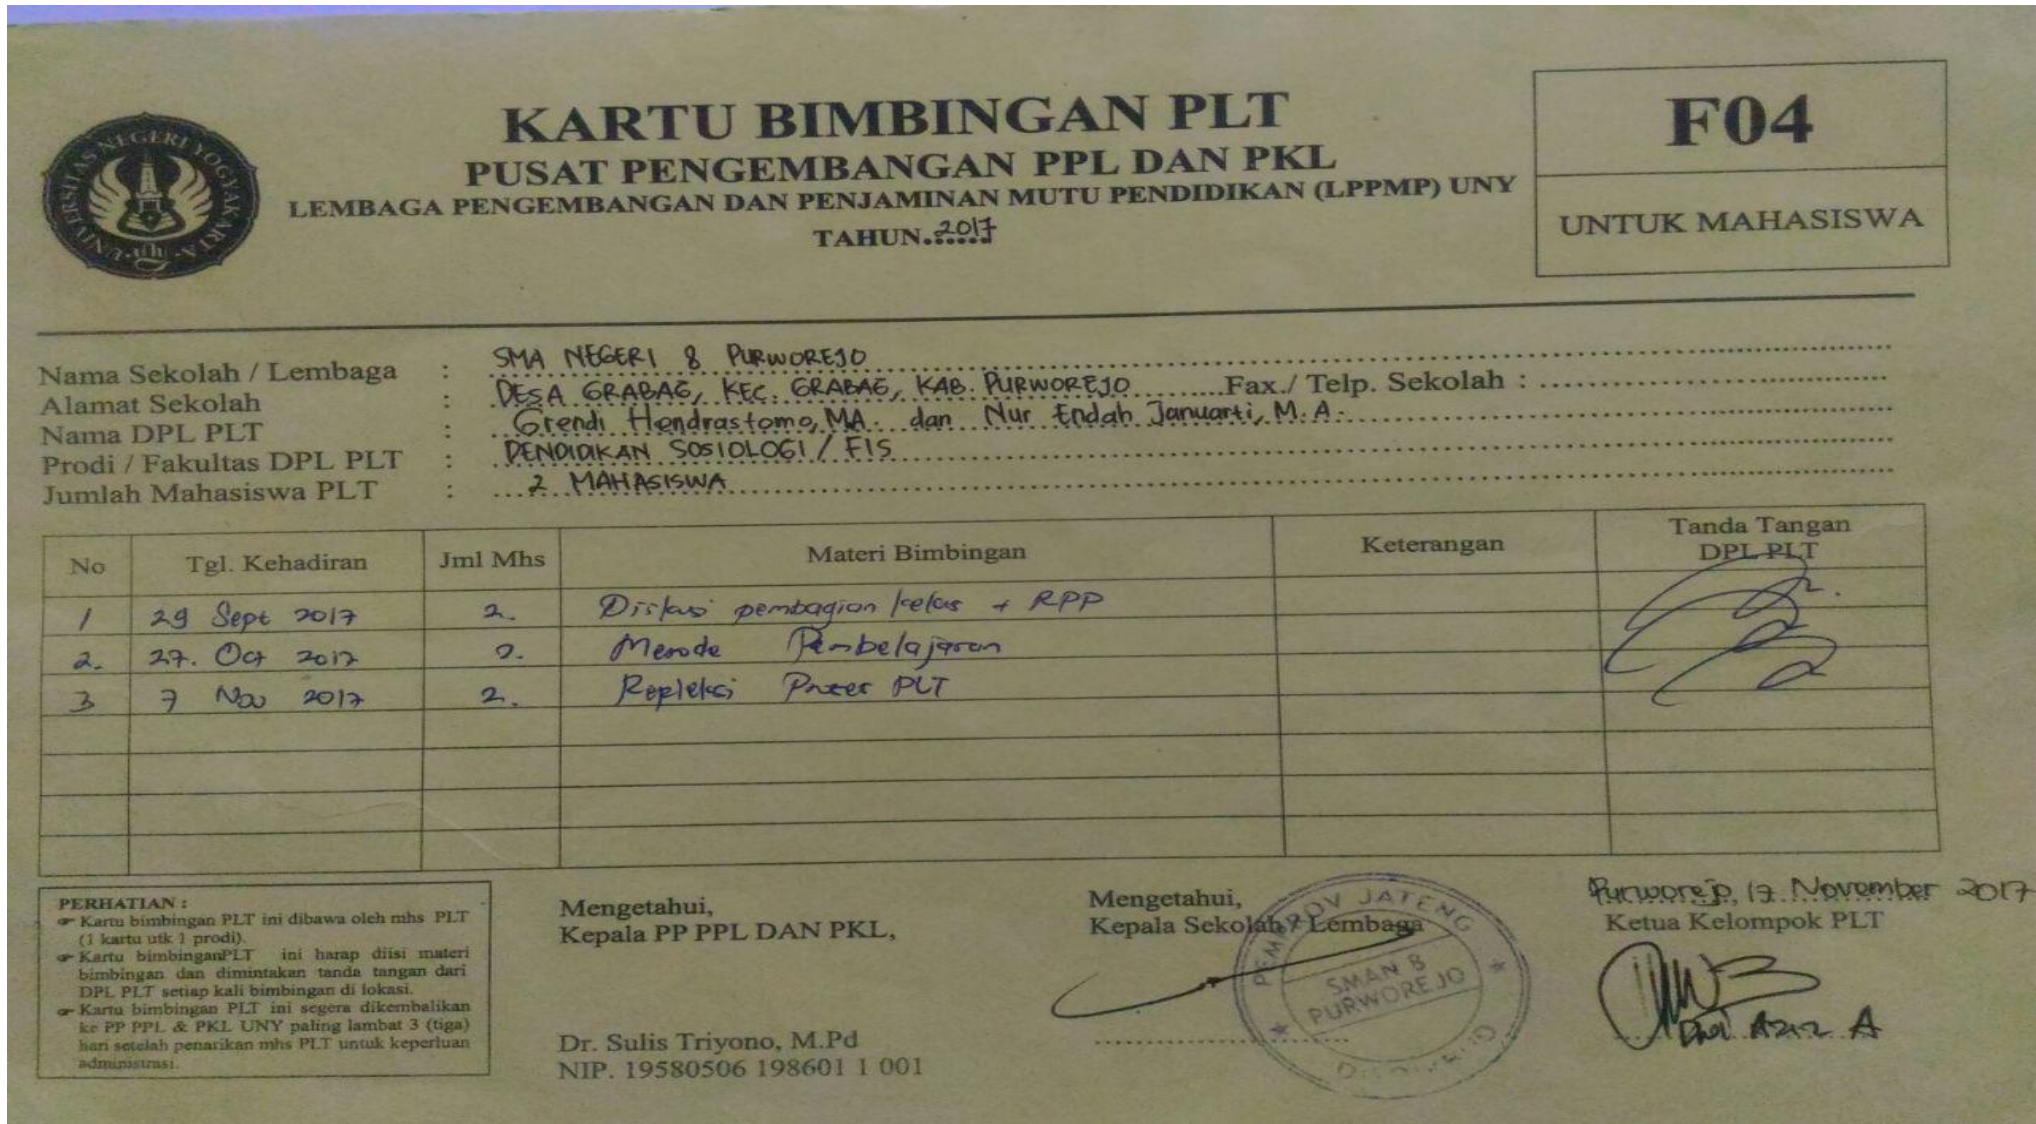 KARTU BIMBINGAN PLT
PUSAT PENGEMBANGAN PPL DAN PKL
LEMBAGA PENGEMBANGAN DAN PENJAMINAN MUTU PENDIDIKAN (LPPMP) UNY
TAHUN. 2017
F04
UNTUK MAHASISWA
UNIVERSITAS NEGERI YOGYAKARTA
Nama Sekolah / Lembaga : SMA NEGERI 8 PURWOREJO
Alamat Sekolah : DESA GRABAG, KEC. GRABAG, KAB. PURWOREJO Fax./ Telp. Sekolah :
Nama DPL PLT : Grendi Hendrastomo, MA. dan Nur Endah Januarti, M.A.
Prodi / Fakultas DPL PLT : PENDIDIKAN SOSIOLOGI / FIS
Jumlah Mahasiswa PLT : 2 MAHASISWA
No Tgl. Kehadiran Jml Mhs Materi Bimbingan Keterangan Tanda Tangan DPL PLT
1 29 Sept 2017 2. Diskusi pembagian kelas + RPP
2. 27. Oct 2017 2. Metode Pembelajaran
3 7 Nov 2017 2. Refleksi PLT
PERHATIAN :
☞ Kartu bimbingan PLT ini dibawa oleh mhs PLT
(1 kartu utk 1 prodi).
☞ Kartu bimbinganPLT ini harap diisi materi
bimbingan dan dimintakan tanda tangan dari
DPL PLT setiap kali bimbingan di lokasi.
☞ Kartu bimbingan PLT ini segera dikembalikan
ke PP PPL & PKL UNY paling lambat 3 (tiga)
hari setelah penarikan mhs PLT untuk keperluan
administrasi.
Mengetahui,
Kepala PP PPL DAN PKL,
Dr. Sulis Triyono, M.Pd
NIP. 19580506 198601 1 001
Mengetahui,
Kepala Sekolah / Lembaga
PEMPROV JATENG
SMAN 8
PURWOREJO
Purworejo, 17 November 2017
Ketua Kelompok PLT
Aziz A